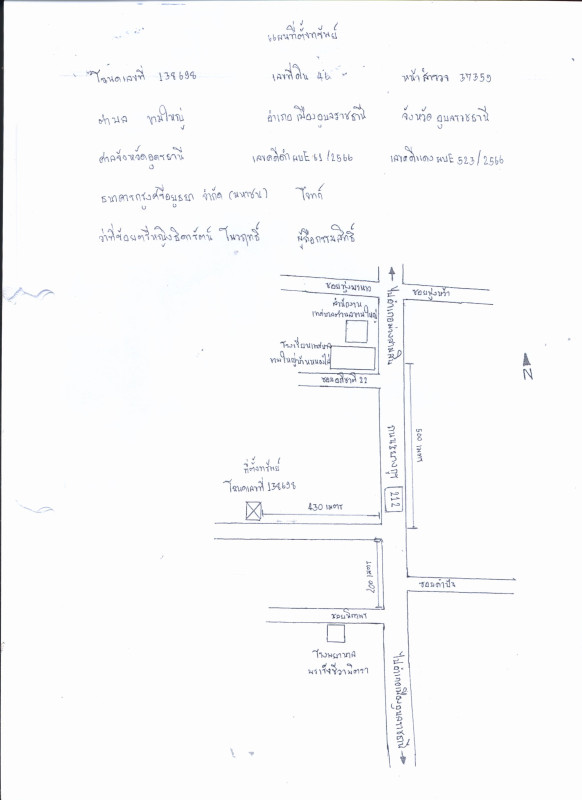 แผนที่ตั้งทรัพย์
โฉนดเลขที่ 138698 เลขที่ดิน 46 หน้าสำรวจ 37359
ตำบล ขามใหญ่ อำเภอ เมืองอุบลราชธานี จังหวัด อุบลราชธานี
ศาลจังหวัดอุดรธานี เลขคดีดำ ผบE 61/2566 เลขคดีแดง ผบE 523/2566
ธนาคารกรุงศรีอยุธยา จำกัด (มหาชน) โจทก์
ว่าที่ร้อยตรีหญิงธิดารัตน์ ผู้ถือกรรมสิทธิ์
ซอยทุ่งนาเหว
ไปอำเภอม่วงสามสิบ
ซอยทุ่งหว้า
สำนักงาน
เทศบาลตำบลขามใหญ่
โรงเรียนเทศบาล
ขามใหญ่บ้านหนองไผ่
ซอยอธิชาติ 22
N
500 เมตร
ถนนชยางกูร
212
ที่ตั้งทรัพย์
โฉนดเลขที่ 138698
430 เมตร
200 เมตร
ซอยคำปัง
โรงพยาบาล
พระศรีชีวามิตรา
ไปอำเภอเมืองอุบลราชธานี